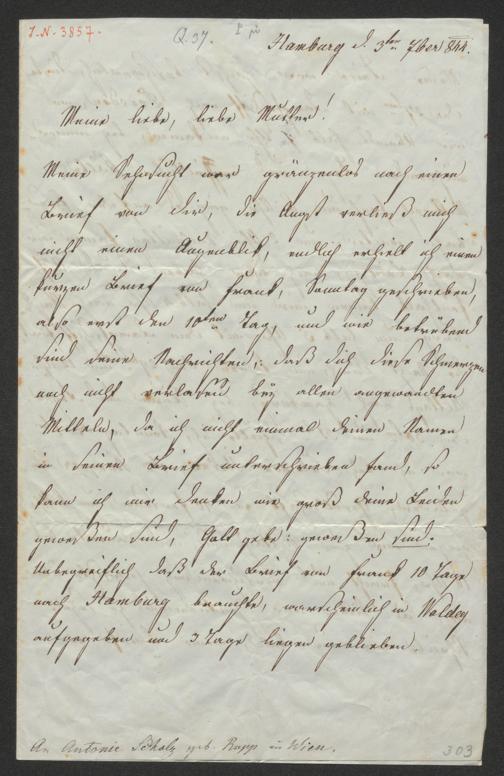 I.N. 3857.
Q. 37.
Hamburg d. 3ten 7ber 844.
Meine liebe, liebe Mutter!
Meine Sehnsucht war gränzenlos nach einen
Brief von dir, die Angst verließ mich
nicht einen Augenblik, endlich erhielt ich einen
kurzen Brief von Frank, Sonntag geschrieben,
also erst den 10ten Tag, und wie betrübend
sind seine Nachrichten, daß dich diese Schmerzen
noch nicht verlaßen bey allen angewandten
Mitteln, da ich nicht einmal deinen Namen
in seinen Brief unterschrieben fand, so
kann ich mir denken wie groß deine Leiden
gewesen sind, Gott gebe: gewesen sind.
Unbegreiflich daß der Brief von Frank 10 Tage
nach Hamburg brauchte, warscheinlich in
aufgegeben und 3 Tage liegen geblieben.
An Antonie Scholz geb. Rupp in Wien.
303